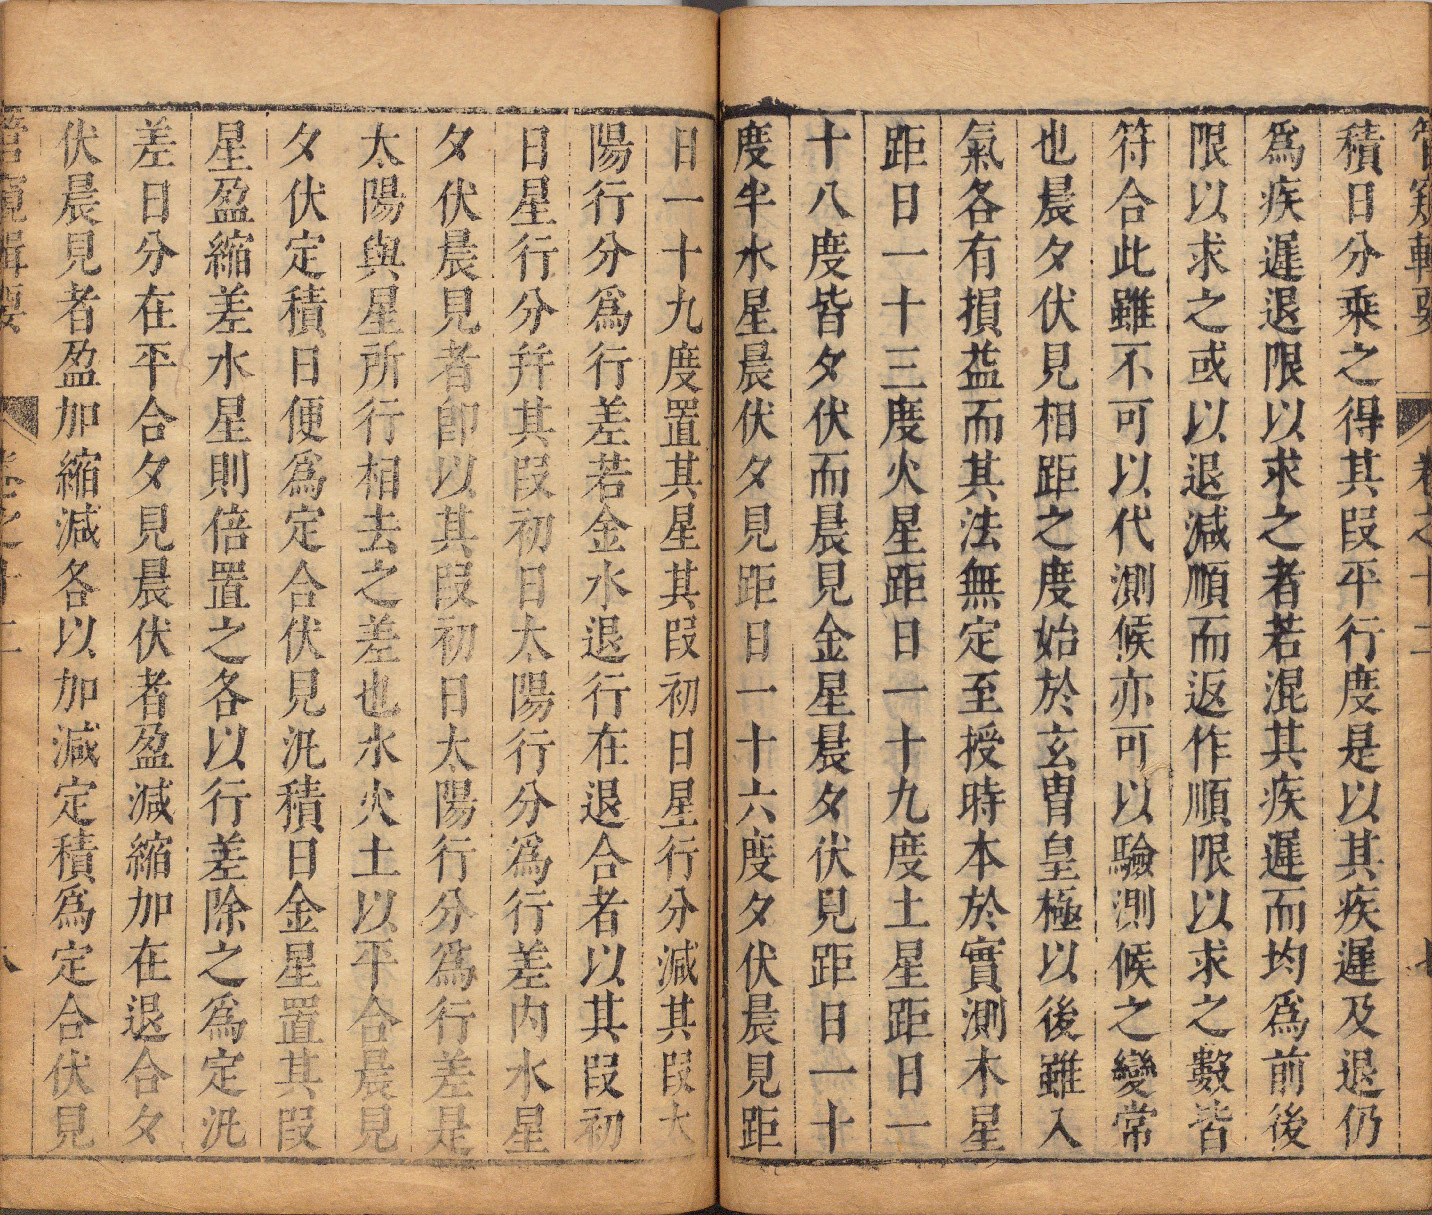 管窺輯要 卷之十二 七
積日分乘之得其叚平行度是以其疾遲及退仍
爲疾遲退限以求之者若混其疾遲而均爲前後
限以求之或以退減順而返作順限以求之數皆
符合此雖不可以代測候亦可以驗測候之變常
也晨夕伏見相距之度始於玄胄皇極以後雖入
氣各有損益而其法無定至授時本於實測木星
距日一十三度火星距日一十九度土星距日一
十八度皆夕伏而晨見金星晨夕伏見距日一十
度半水星晨伏夕見距日一十六度夕伏晨見距
日一十九度置其星其叚初日星行分減其叚太
陽行分爲行差若金水退行在退合者以其叚初
日星行分幷其叚初日太陽行分爲行差內水星
夕伏晨見者卽以其叚初日太陽行分爲行差是
太陽與星所行相去之差也水火土以平合晨見
夕伏定積日便爲定合伏見汎積日金星置其叚
星盈縮差水星則倍置之各以行差除之爲定汎
差日分在平合夕見晨伏者盈減縮加在退合夕
伏晨見者盈加縮減各以加減定積爲定合伏見
管窺輯要 卷之十二 八